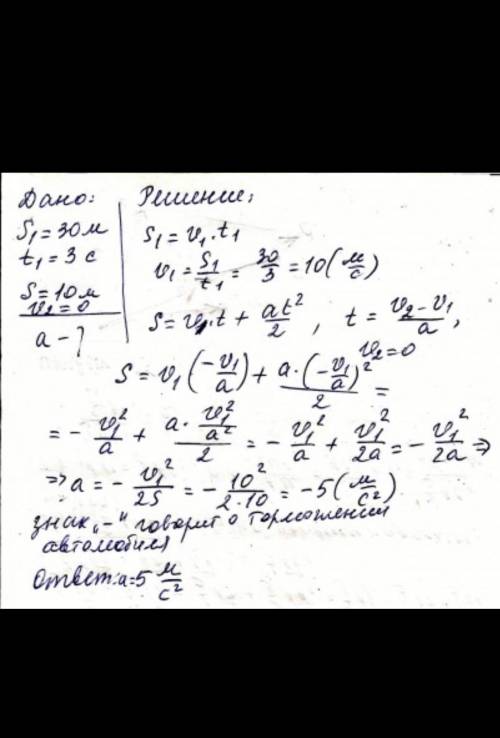 Дано:
S₁=30м
t₁=3 с
S=10м
v₂=0
a-?
Решение:
S₁=v₁·t₁
v₁=S₁/t₁=30/3=10(м/с)
S=v₁t+at²/2, t=(v₂-v₁)/a,
v₂=0
S=v₁(-v₁/a)+a·(-v₁/a)²/2=
=-v₁²/a+(a·v₁²/a²)/2=-v₁²/a+v₁²/2a=-v₁²/2a⇒
⇒a=-v₁²/2S=-10²/2·10=-5(м/с²)
знак „-" говорит о торможении
автомобиля
Ответ:a=5 м/с²